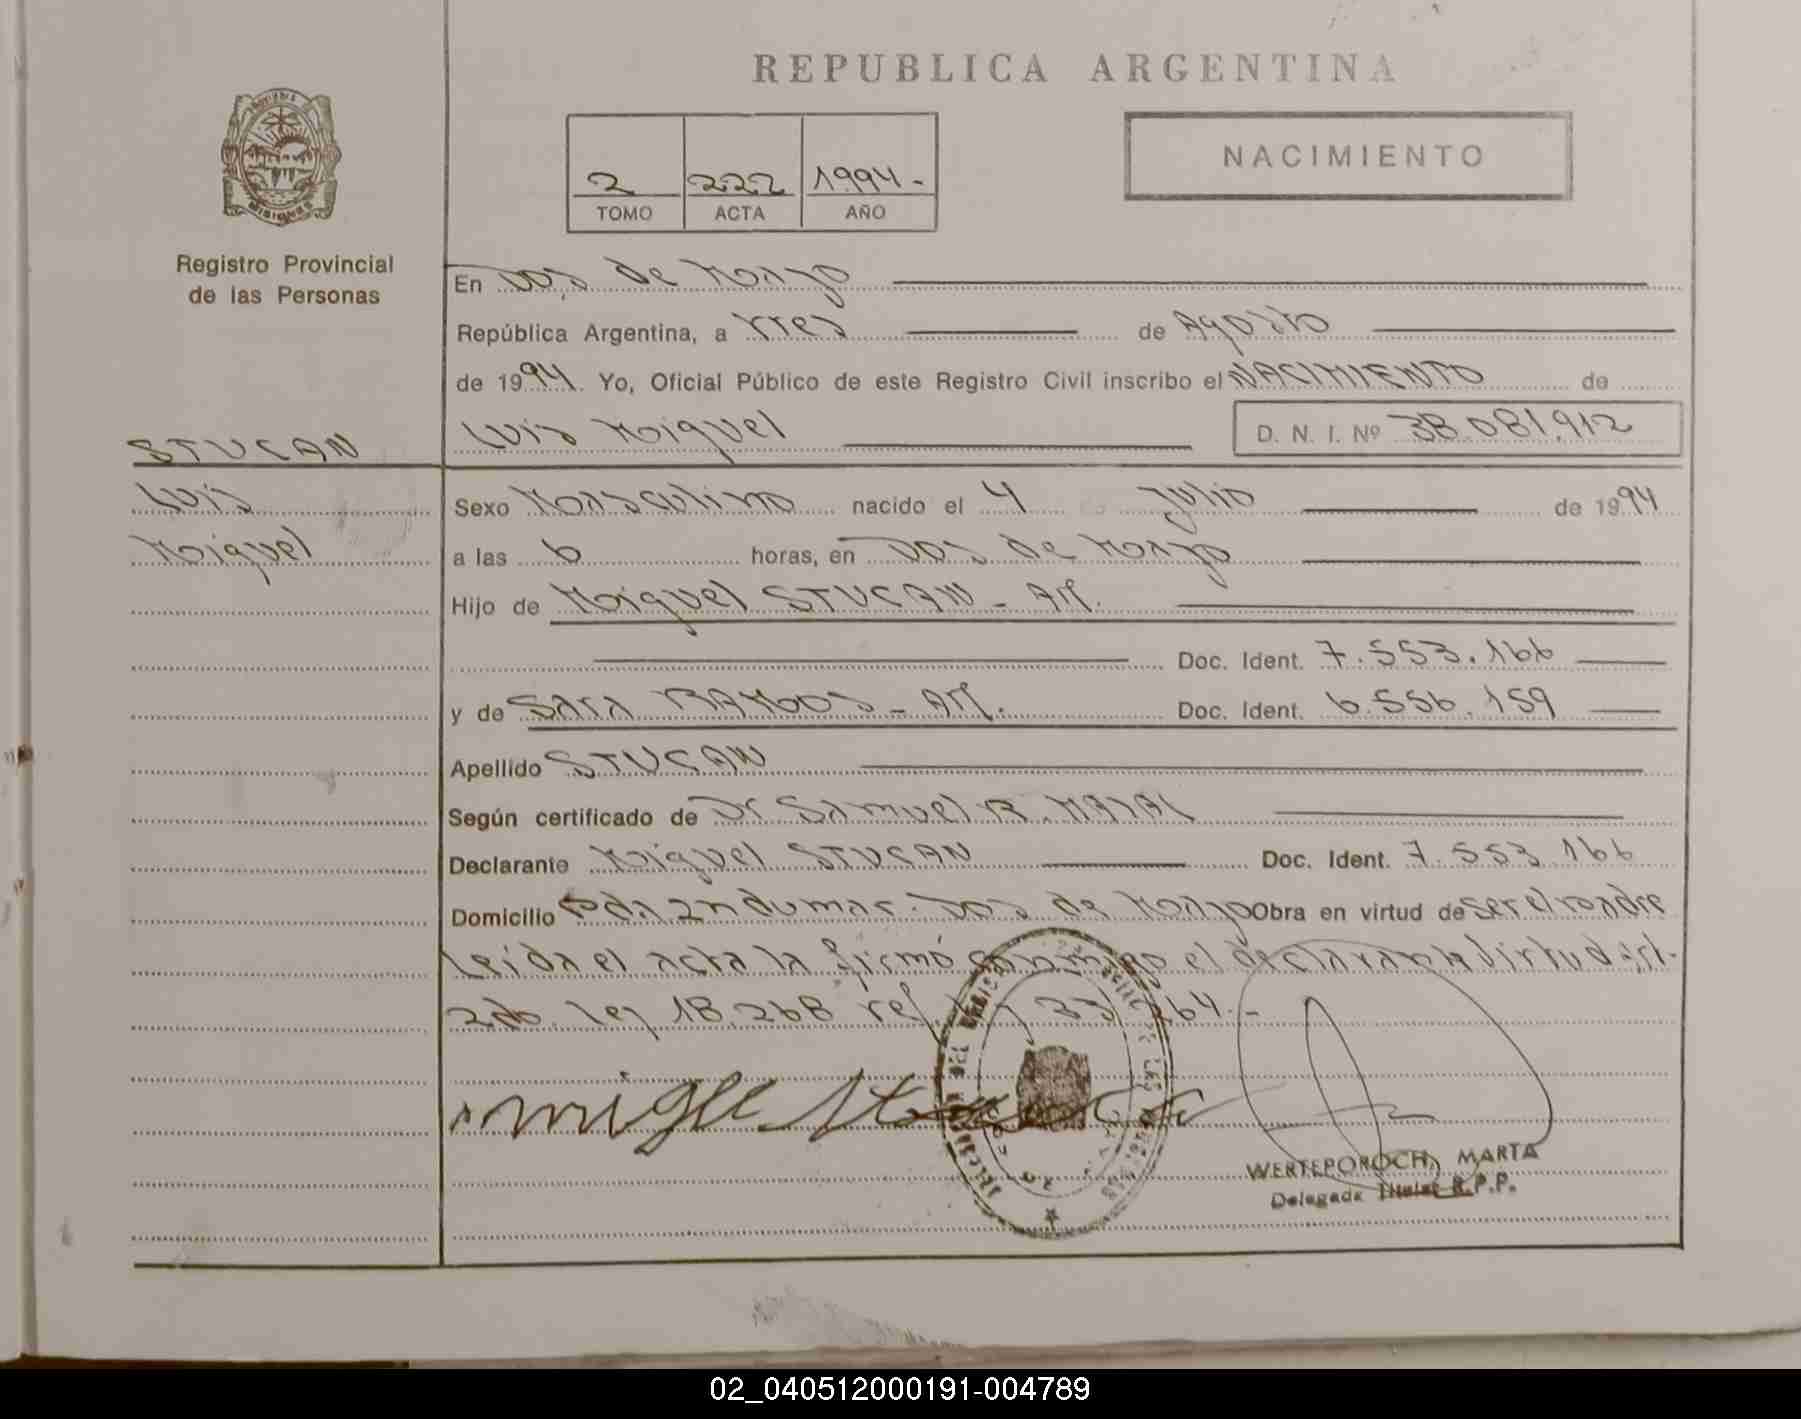 REPUBLICA ARGENTINA
NACIMIENTO
2 222 1994.-
TOMO ACTA AÑO
Registro Provincial
de las Personas
En Dos de Mayo
República Argentina, a tres de Agosto
de 1994. Yo, Oficial Público de este Registro Civil inscribo el NACIMIENTO de
Luis Miguel D. N. I. Nº 38.081.912
STUCAN
Luis
Miguel
Sexo Masculino nacido el 4 de Julio de 1994
a las 6 horas, en Dos de Mayo
Hijo de Miguel STUCAN - Arg.
Doc. Ident. 7.553.166
y de Sara RAMOS - Arg. Doc. Ident. 6.556.159
Apellido STUCAN
Según certificado de Dr Samuel R.
Declarante Miguel STUCAN Doc. Ident. 7.553.166
Domicilio Dos de Mayo Obra en virtud de ser el padre
Leida el acta la firmó conmigo el declarante Virtud Art.
2do. ley 18.268 ref. 264.-
WERTEPOROCH, MARTA
Delegada Titular R.P.P.
02_040512000191-004789